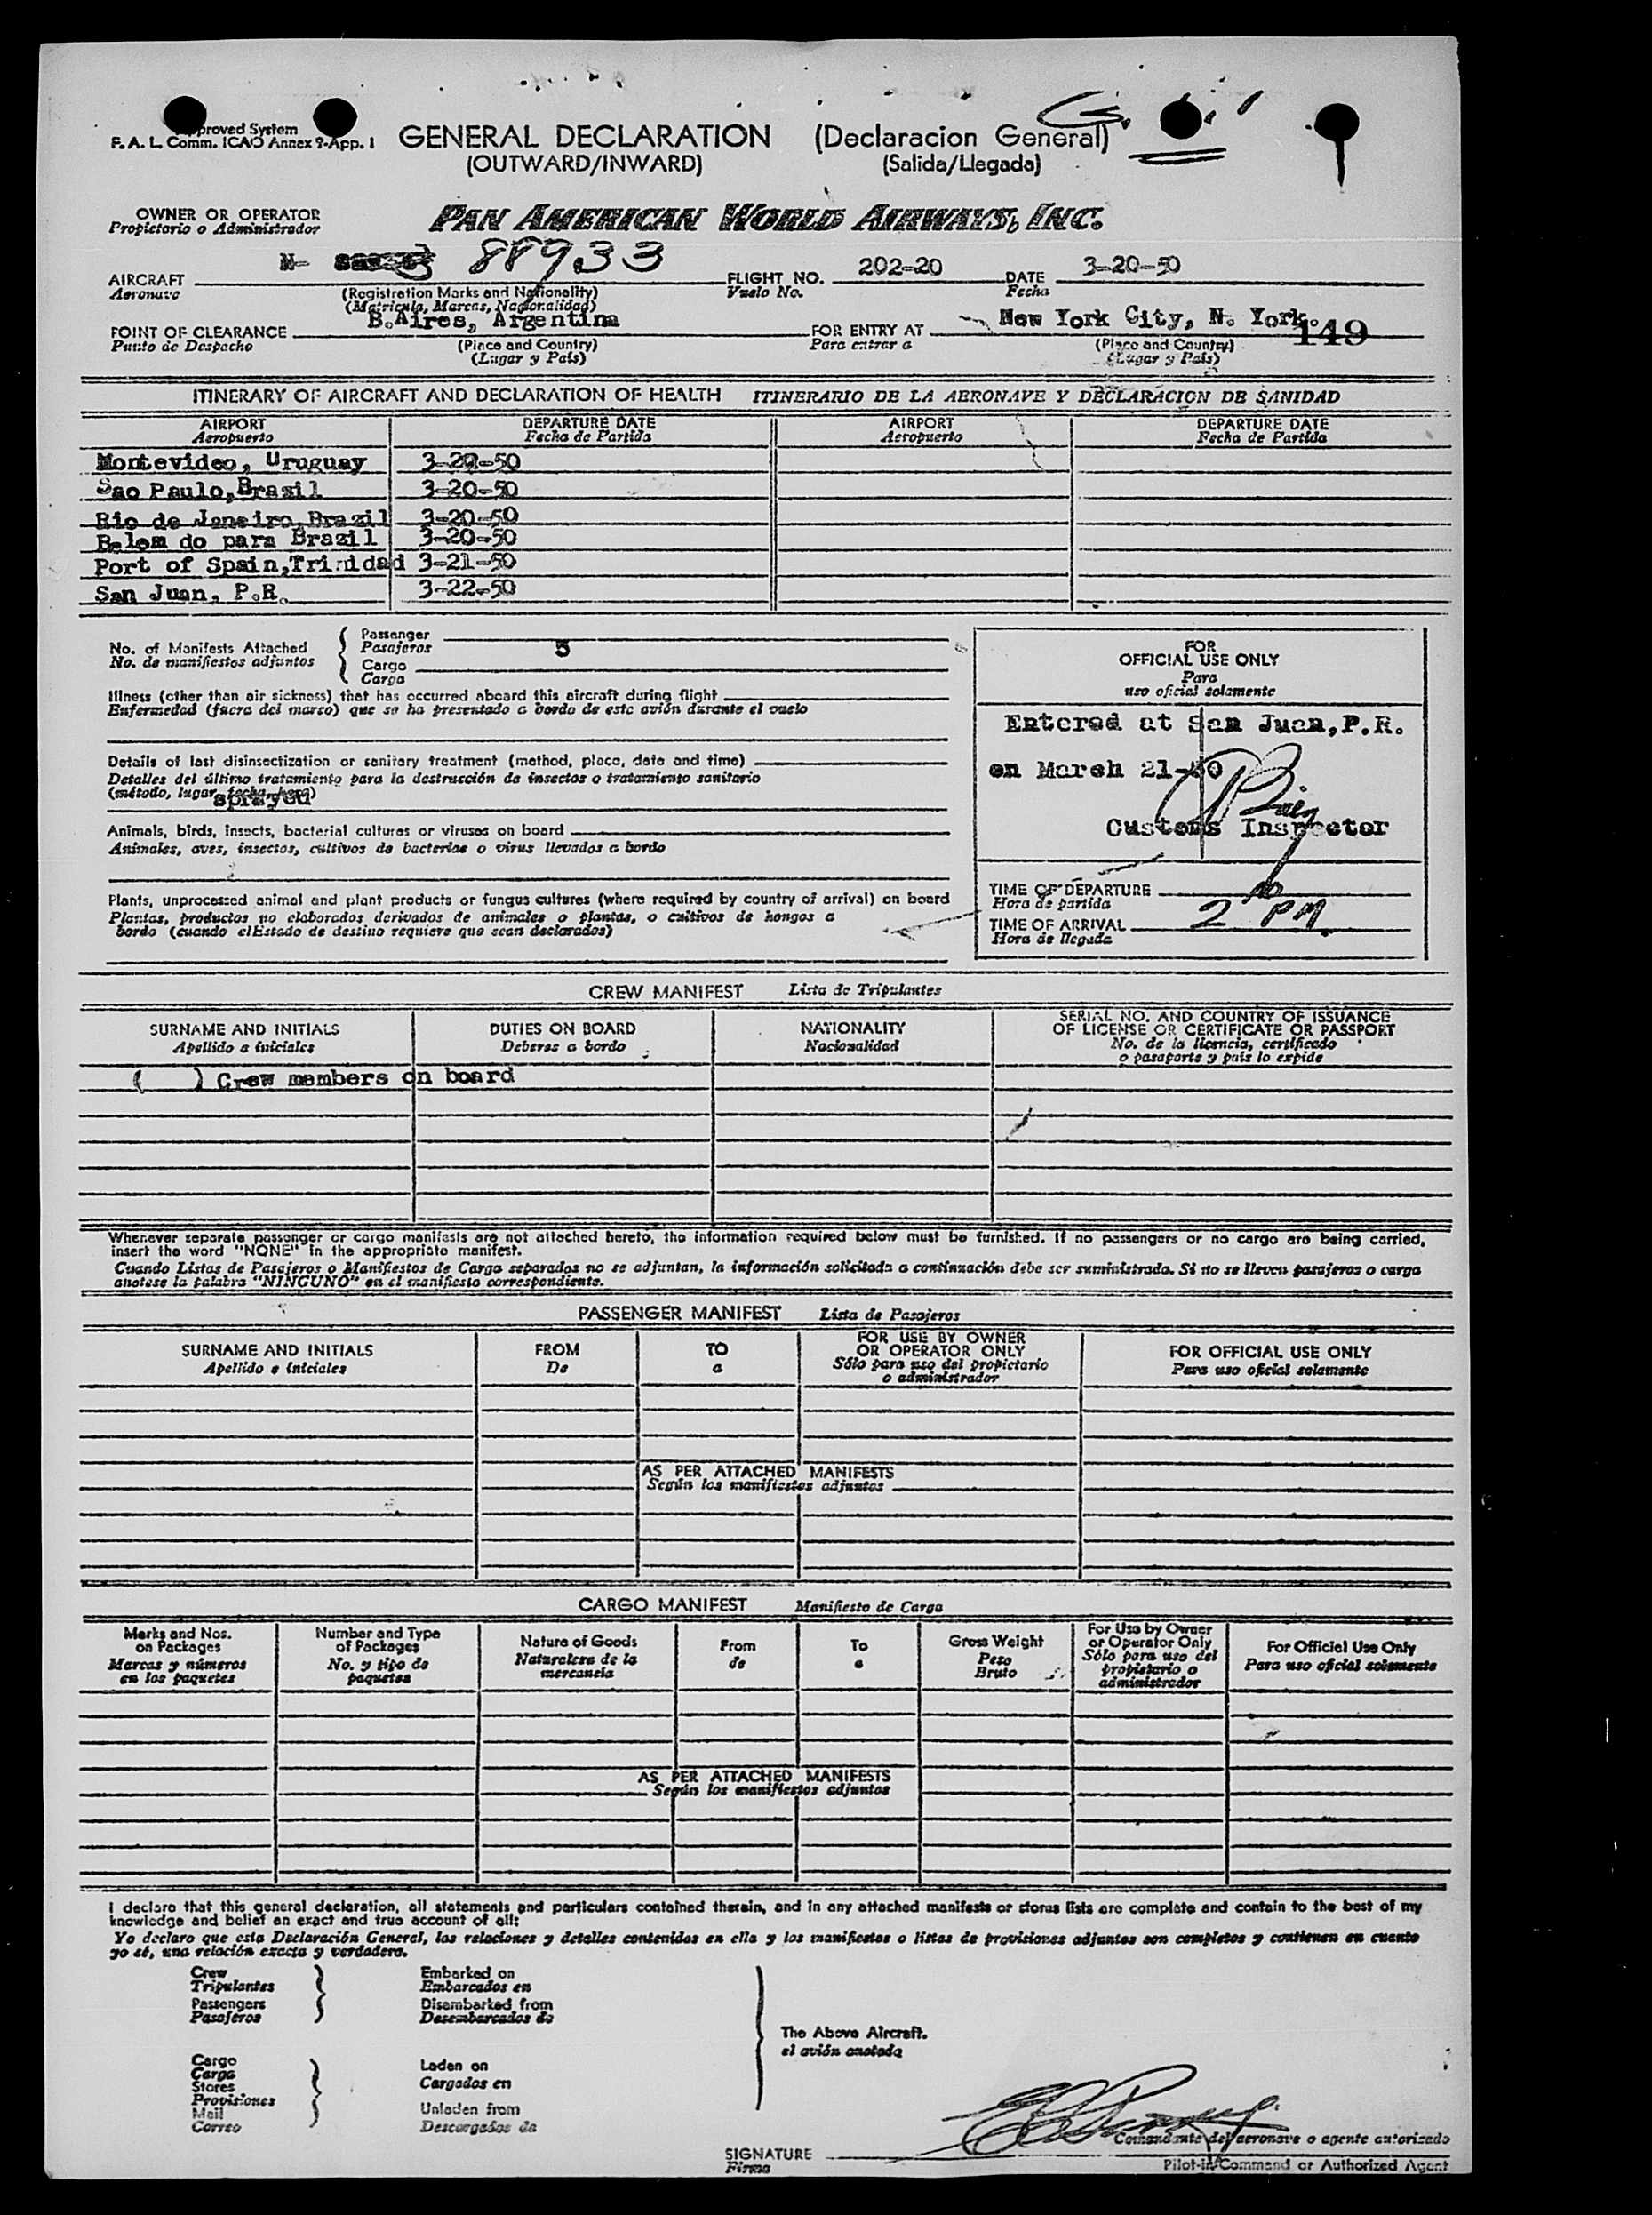 Approved System
F. A. L. Comm. ICAO Annex 9-App. 1
GENERAL DECLARATION (Declaracion General)
(OUTWARD/INWARD) (Salida/Llegada)
OWNER OR OPERATOR
Propietario o Administrador
PAN AMERICAN WORLD AIRWAYS, INC.
AIRCRAFT N- 88933 FLIGHT NO. 202-20 DATE 3-20-50
Aeronave (Registration Marks and Nationality) Vuelo No. Fecha
(Matricula, Marcas, Nacionalidad)
POINT OF CLEARANCE B.Aires, Argentina FOR ENTRY AT New York City, N. York. 149
Punto de Despacho (Place and Country) Para entrar a (Place and Country)
(Lugar y Pais) (Lugar y Pais)
ITINERARY OF AIRCRAFT AND DECLARATION OF HEALTH ITINERARIO DE LA AERONAVE Y DECLARACION DE SANIDAD
AIRPORT DEPARTURE DATE AIRPORT DEPARTURE DATE
Aeropuerto Fecha de Partida Aeropuerto Fecha de Partida
Montevideo, Uruguay 3-20-50
Sao Paulo, Brazil 3-20-50
Rio de Janeiro, Brazil 3-20-50
Belem do para Brazil 3-20-50
Port of Spain, Trinidad 3-21-50
San Juan, P.R. 3-22-50
No. of Manifests Attached
No. de manifiestos adjuntos
Passenger
Pasajeros 5
Cargo
Carga
Illness (other than air sickness) that has occurred aboard this aircraft during flight
Enfermedad (fuera del mareo) que se ha presentado a bordo de este avión durante el vuelo
Details of last disinsectization or sanitary treatment (method, place, date and time)
Detalles del último tratamiento para la destrucción de insectos o tratamiento sanitario
(método, lugar, fecha, hora)
sprayed
Animals, birds, insects, bacterial cultures or viruses on board
Animales, aves, insectos, cultivos de bacterias o virus llevados a bordo
Plants, unprocessed animal and plant products or fungus cultures (where required by country of arrival) on board
Plantas, productos no elaborados derivados de animales o plantas, o cultivos de hongos a
bordo (cuando el Estado de destino requiere que sean declarados)
FOR
OFFICIAL USE ONLY
Para
uso oficial solamente
Entered at San Juan, P.R.
on March 21-50
Customs Inspector
TIME OF DEPARTURE
Hora de partida
TIME OF ARRIVAL 2 PM.
Hora de llegada
CREW MANIFEST Lista de Tripulantes
SURNAME AND INITIALS DUTIES ON BOARD NATIONALITY SERIAL NO. AND COUNTRY OF ISSUANCE
OF LICENSE OR CERTIFICATE OR PASSPORT
Apellido e iniciales Deberes a bordo Nacionalidad No. de la licencia, certificado
o pasaporte y país lo expide
( ) Crew members on board
Whenever separate passenger or cargo manifests are not attached hereto, the information required below must be furnished. If no passengers or no cargo are being carried,
insert the word "NONE" in the appropriate manifest.
Cuando Listas de Pasajeros o Manifiestos de Carga separados no se adjuntan, la información solicitada a continuación debe ser suministrada. Si no se lleven pasajeros o carga
anotese la palabra "NINGUNO" en el manifiesto correspondiente.
PASSENGER MANIFEST Lista de Pasajeros
SURNAME AND INITIALS FROM TO FOR USE BY OWNER
OR OPERATOR ONLY FOR OFFICIAL USE ONLY
Apellido e iniciales De a Sólo para uso del propietario
o administrador Para uso oficial solamente
AS PER ATTACHED MANIFESTS
Según los manifiestos adjuntos
CARGO MANIFEST Manifiesto de Carga
Marks and Nos.
on Packages
Marcas y números
en los paquetes
Number and Type
of Packages
No. y tipo de
paquetes
Nature of Goods
Naturaleza de la
mercancia
From
de
To
a
Gross Weight
Peso
Bruto
For Use by Owner
or Operator Only
Sólo para uso del
propietario o
administrador
For Official Use Only
Para uso oficial solamente
AS PER ATTACHED MANIFESTS
Según los manifiestos adjuntos
I declare that this general declaration, all statements and particulars contained therein, and in any attached manifests or stores lists are complete and contain to the best of my
knowledge and belief an exact and true account of all:
Yo declaro que esta Declaración General, las relaciones y detalles contenidos en ella y los manifiestos o listas de provisiones adjuntos son completos y contienen en cuanto
yo sé, una relación exacta y verdadera.
Crew
Tripulantes
Passengers
Pasajeros
Embarked on
Embarcados en
Disembarked from
Desembarcados de
The Above Aircraft.
el avión anotado
Cargo
Carga
Stores
Provisiones
Mail
Correo
Laden on
Cargados en
Unladen from
Descargados de
SIGNATURE
Firma
Comandante del aeronave o agente autorizado
Pilot-in-Command or Authorized Agent